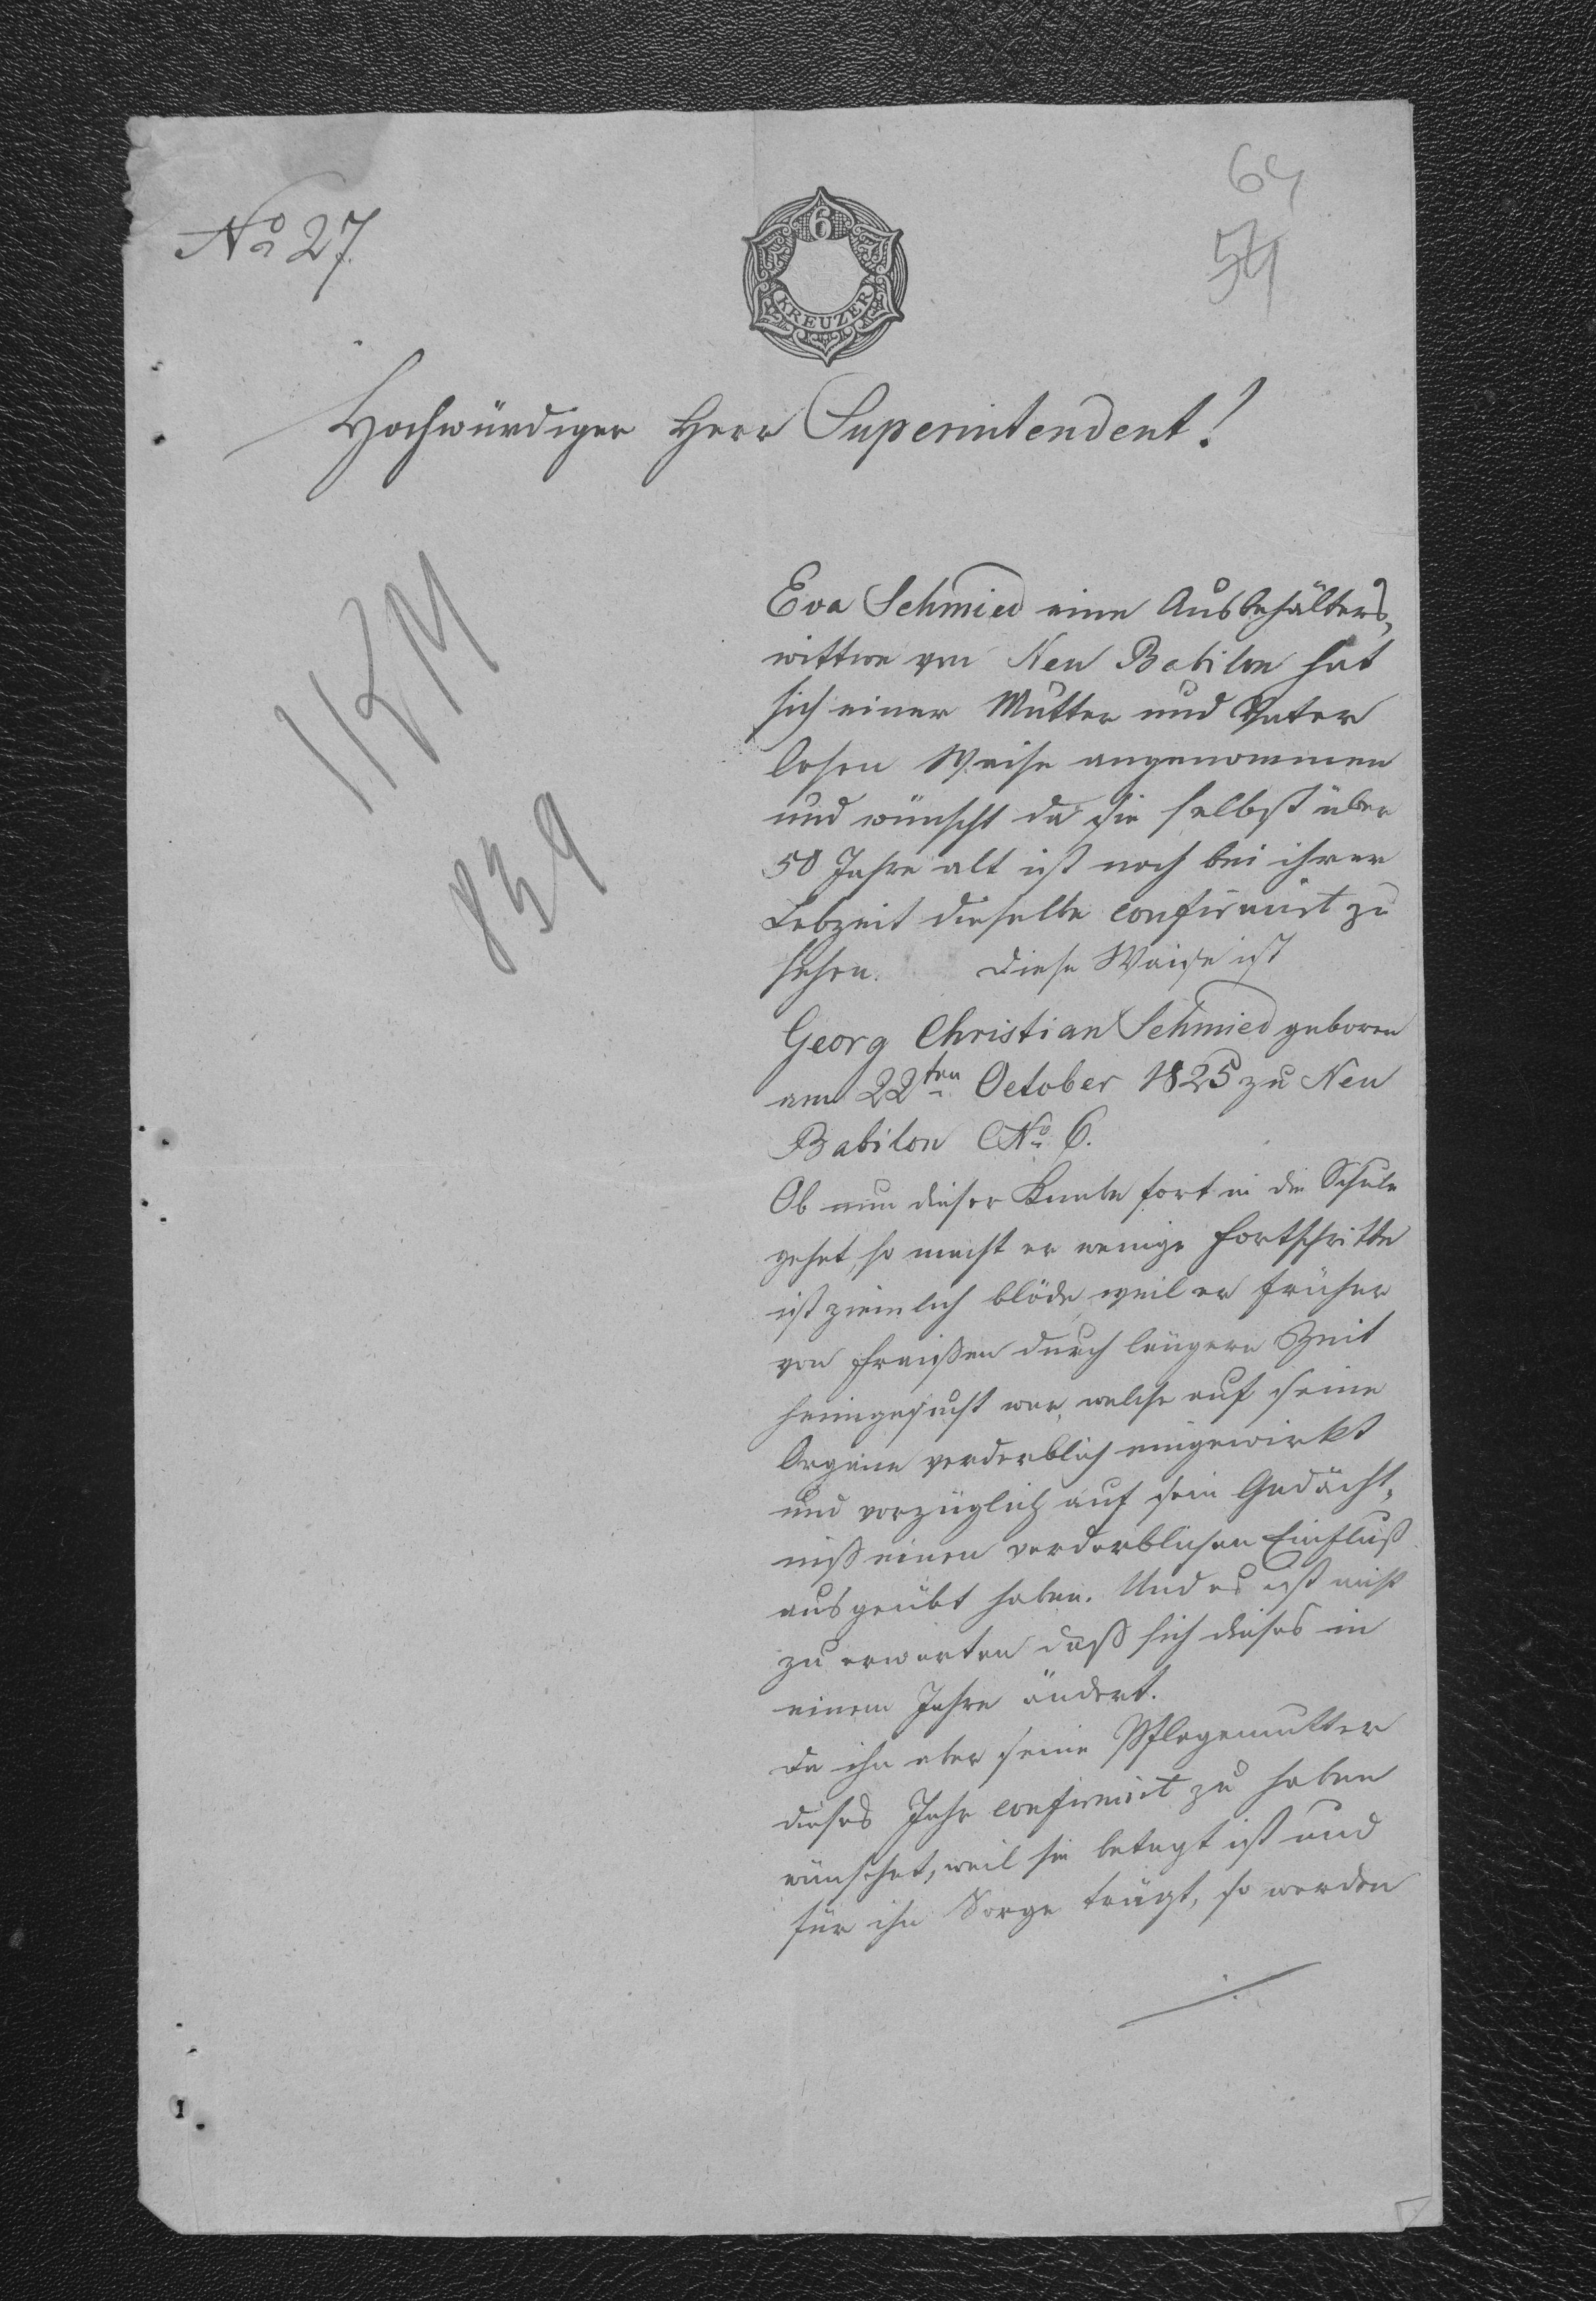 64
54
No 27
6
KREUZER
Hochwürdiger Herr Superintendent!
1 KM
839
Eva Schmied eine Ausbehälters,
wittwe von Neu Babilon hat
sich einer Mutter und Vater
losen Waise angenommen
und wünscht da sie selbst über
50 Jahre alt ist noch bei ihrer
Lebzeit dieselbe confirmirt zu
sehen. Diese Waise ist
Georg Christian Schmied geboren
am 22ten October 1825 zu Neu
Babilon CNo 6.
Ob nun dieser Knabe fort in die Schule
gehet, so macht er wenige Fortschritte
ist ziemlich blöde, weil er früher
von Fraißen durch längere Zeit
heimgesucht war, welche auf seine
Organe verderblich eingewirkt
und vorzüglich auf sein Gedächt,
niß einen verderblichen Einfluß
ausgeübt haben. Und es ist nicht
zu erwarten daß sich dieses in
einem Jahre ändert.
Da ihn aber seine Pflegemutter
dieses Jahr confirmirt zu haben
wünschet, weil sie betagt ist und
für ihn Sorge trägt, so werden
./.